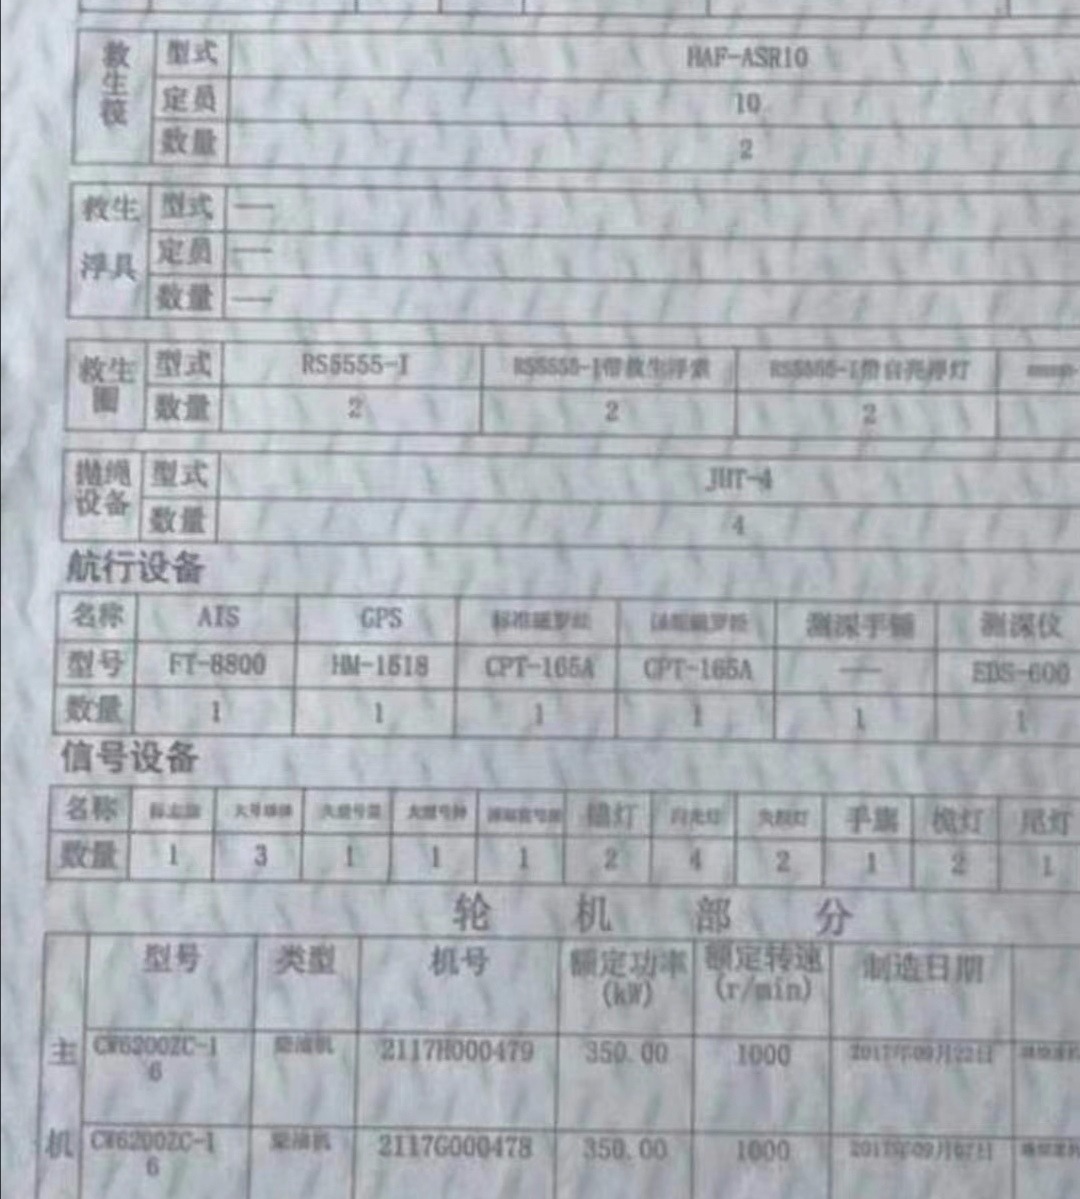 救生筏 型式 HAF-ASR10
定员 10
数量 2
救生浮具 型式 —
定员 —
数量 —
救生圈 型式 RS5555-I RS5555-I带救生浮索 RS5555-I带自亮浮灯
数量 2 2 2
抛绳设备 型式 JHT-4
数量 4
航行设备
名称 AIS GPS 标准磁罗经 磁罗经 测深手锤 测深仪
型号 FT-8800 HM-1518 CPT-165A CPT-165A — EDS-600
数量 1 1 1 1 1 1
信号设备
名称 锚灯 闪光灯 失控灯 手旗 桅灯 尾灯
数量 1 3 1 1 1 2 4 2 1 2 1
轮机部分
型号 类型 机号 额定功率(kW) 额定转速(r/min) 制造日期
主机 CW6200ZC-16 柴油机 2117H000479 350.00 1000 2017年09月22日
CW6200ZC-16 柴油机 2117G000478 350.00 1000 2017年09月07日